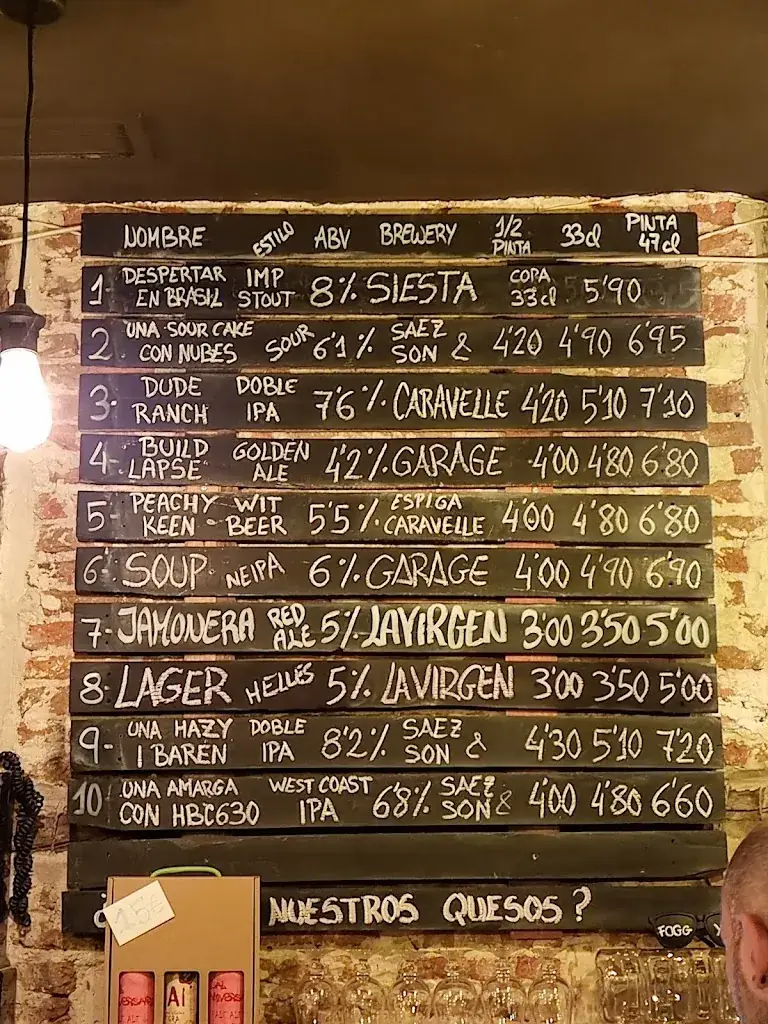 NOMBRE ESTILO ABV BREWERY 1/2 PINTA 33cl PINTA 47cl
1- DESPERTAR EN BRASIL IMP STOUT 8% SIESTA COPA 33cl 5'90
2- UNA SOUR CAKE CON NUBES SOUR 6'1% SAEZ & SON 4'20 4'90 6'95
3- DUDE RANCH DOBLE IPA 7'6% CARAVELLE 4'20 5'10 7'10
4- BUILD LAPSE GOLDEN ALE 4'2% GARAGE 4'00 4'80 6'80
5- PEACHY KEEN - WIT BEER 5'5% ESPIGA CARAVELLE 4'00 4'80 6'80
6- SOUP NEIPA 6% GARAGE 4'00 4'90 6'90
7- JAMONERA RED ALE 5% LAVIRGEN 3'00 3'50 5'00
8- LAGER HELLES 5% LAVIRGEN 3'00 3'50 5'00
9- UNA HAZY I BAREN DOBLE IPA 8'2% SAEZ & SON 4'30 5'10 7'20
10- UNA AMARGA CON HBC630 WEST COAST IPA 6'8% SAEZ & SON 4'00 4'80 6'60
NUESTROS QUESOS ?
15€
FOGG